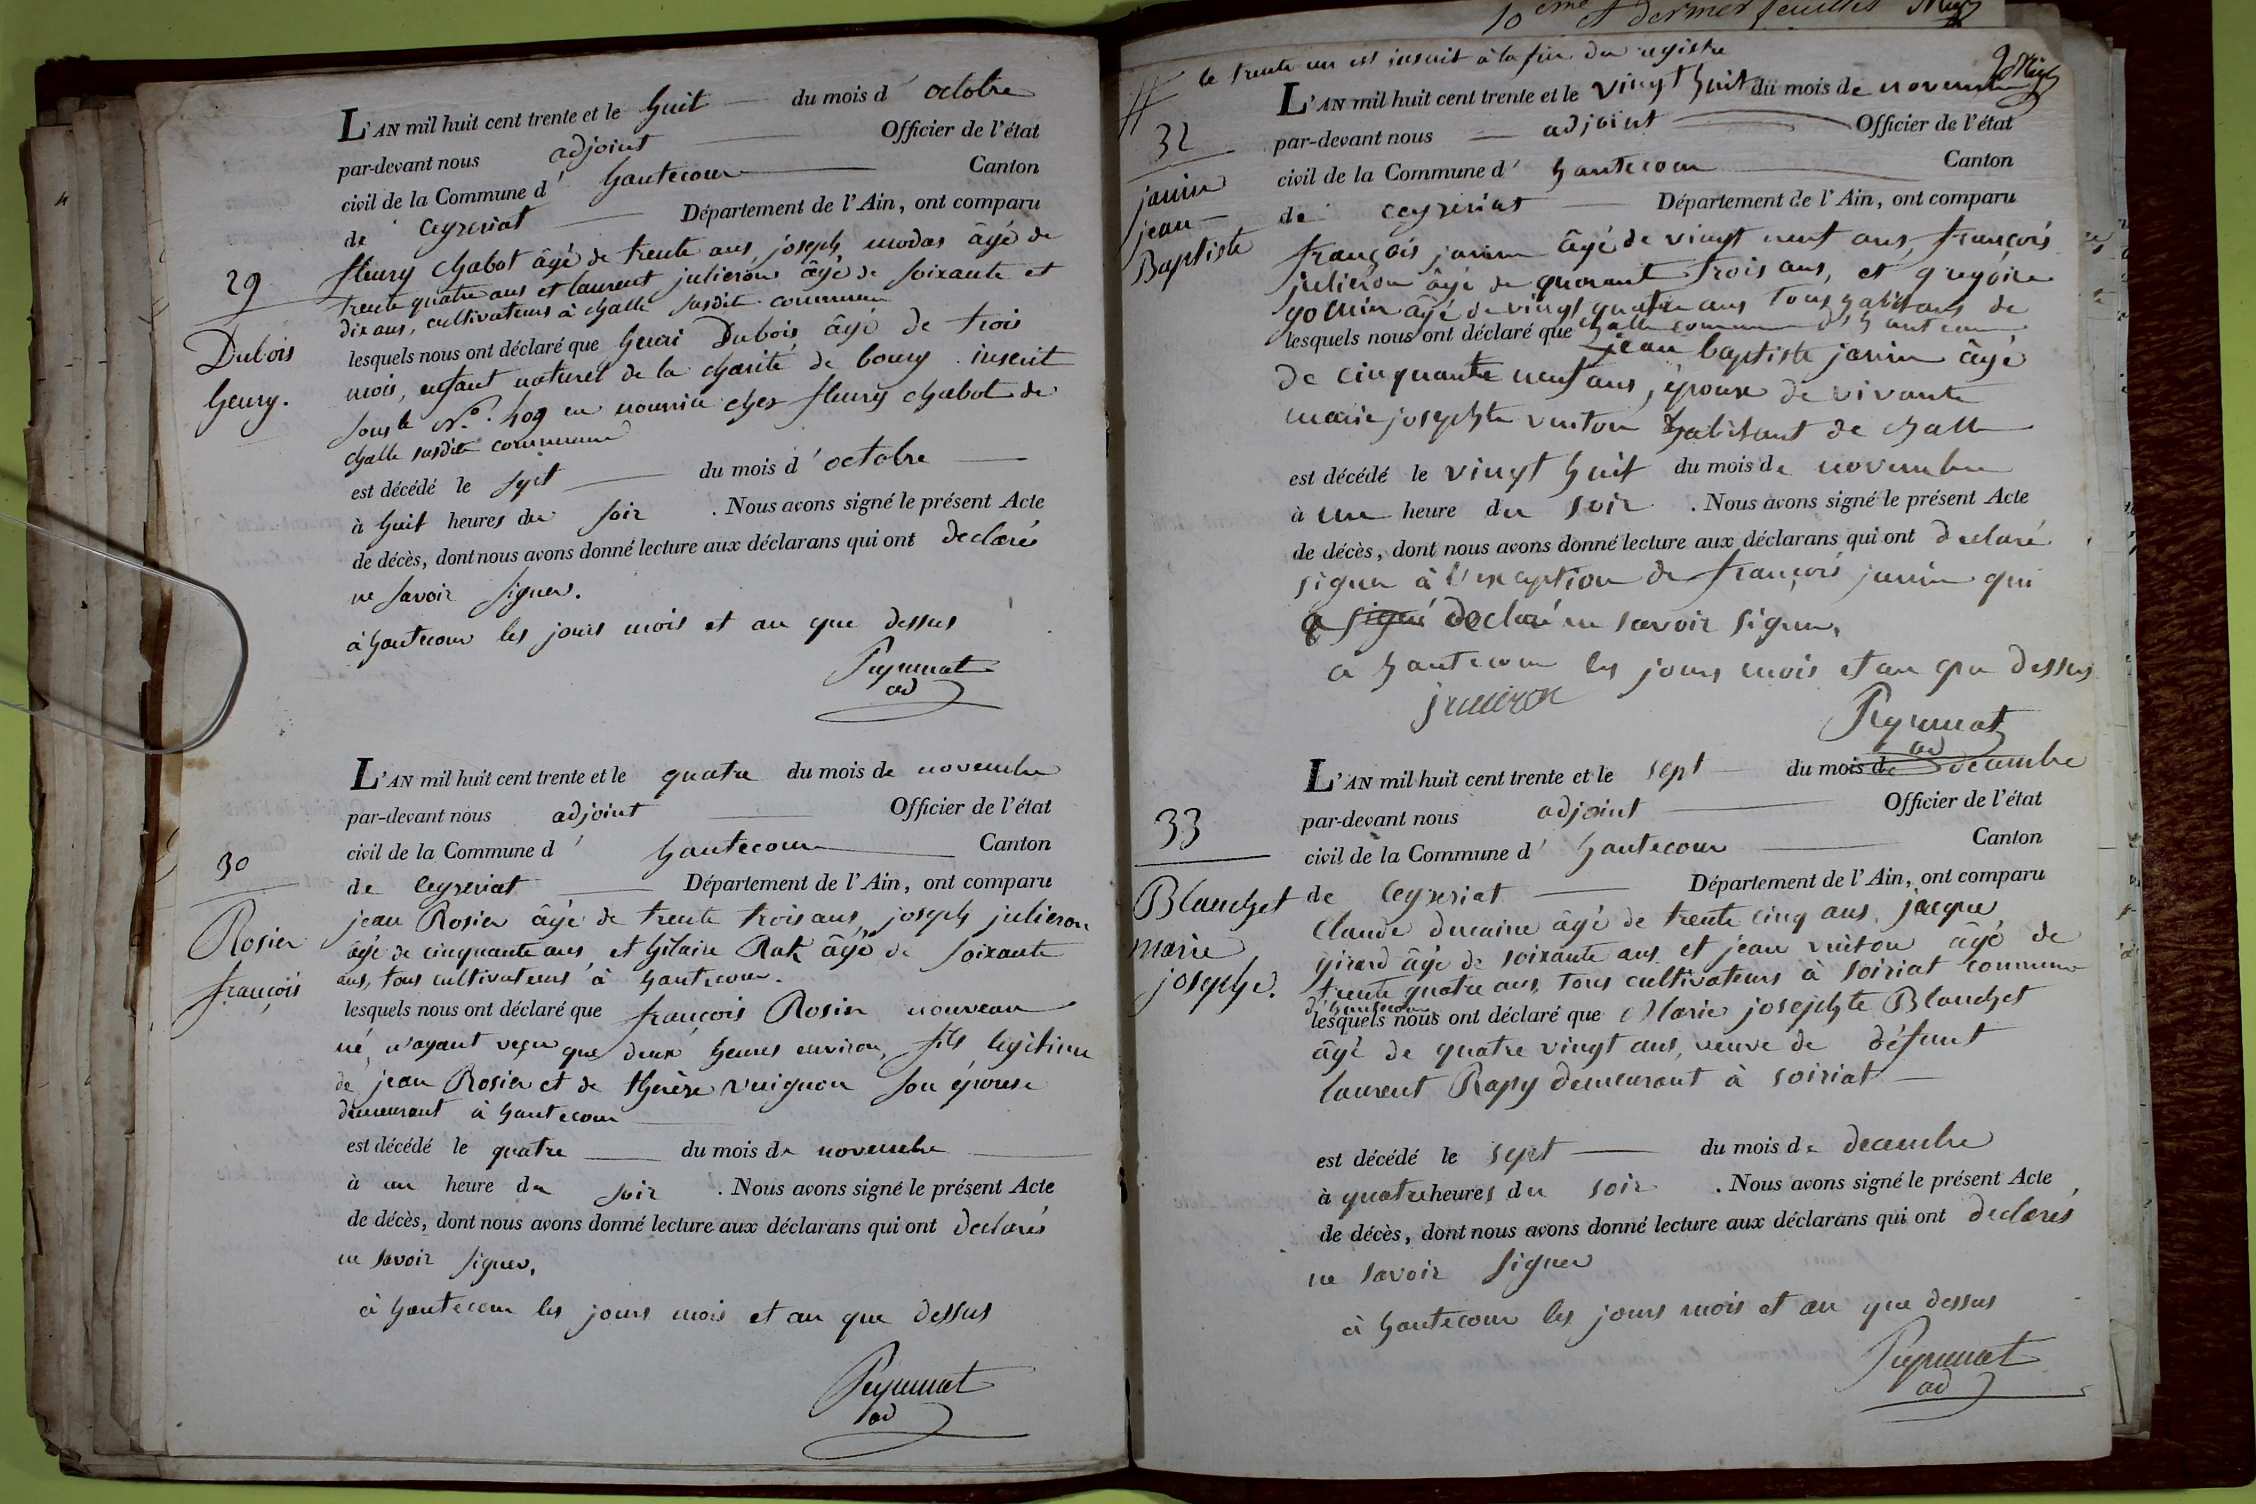 L'AN mil huit cent trente et le huit du mois d' octobre
par-devant nous adjoint Officier de l'état
civil de la Commune d' hautecour Canton
de Ceyzeriat Département de l'Ain, ont comparu
fleury chabot âgé de trente ans, joseph modas âgé de
trente quatre ans et laurent julieron âgé de soixante et
dix ans, cultivateurs à challe susdite commune
29
Dubois
henry.
lesquels nous ont déclaré que henri Dubois, âgé de trois
mois, enfant naturel de la charité de bourg inscrit
sous le N.º 409 en nourrice chez fleury chabot de
challe susdite commune
est décédé le sept du mois d' octobre
à huit heures du soir . Nous avons signé le présent Acte
de décès, dont nous avons donné lecture aux déclarans qui ont declarés
ne savoir signer.
à hautecour les jours mois et an que dessus
ad
L'AN mil huit cent trente et le quatre du mois de novembre
par-devant nous adjoint Officier de l'état
civil de la Commune d' hautecour Canton
de Ceyzeriat Département de l'Ain, ont comparu
30
Rosier
françois
jean Rosier âgé de trente trois ans, joseph julieron
âgé de cinquante ans, et hilaire âgé de soixante
ans, tous cultivateurs à hautecour.
lesquels nous ont déclaré que françois Rosier nouveau
né, n'ayant veçu que deux heures environ, fils légitime
de jean Rosier et de thérèse vuignon son épouse
demeurant à hautecour
est décédé le quatre du mois de novembre
à un heure du soir . Nous avons signé le présent Acte
de décès, dont nous avons donné lecture aux déclarans qui ont declarés
ne savoir signer.
à hautecour les jours mois et an que dessus
ad
10eme et dernier feuillet
le trente un est inscrit à la fin du registre
L'AN mil huit cent trente et le vingt huit du mois de novembre
par-devant nous adjoint Officier de l'état
civil de la Commune d' hautecour Canton
de ceyzeriat Département de l'Ain, ont comparu
32
janin
jean
Baptiste
françois janin âgé de vingt neuf ans, françois
julieron âgé de quarant trois ans, et gregoire
âgé de vingt quatre ans tous habitans de
challe commune d'hautecour
lesquels nous ont déclaré que jean baptiste janin âgé
de cinquante neuf ans, épouse de vivante
marie josephte vuiton habitant de challe
est décédé le vingt huit du mois de novembre
à une heure du soir . Nous avons signé le présent Acte
de décès, dont nous avons donné lecture aux déclarans qui ont declaré
signer à l'exception de françois janin qui
a signé declaré ne savoir signer.
a hautecour les jours mois et an que dessus
julieron
ad
L'AN mil huit cent trente et le sept du mois de decembre
par-devant nous adjoint Officier de l'état
civil de la Commune d' hautecour Canton
de Ceyzeriat Département de l'Ain, ont comparu
33
Blanchet
marie
josephe.
Claude ducaine âgé de trente cinq ans, jacque
girard âgé de soixante ans et jean vuiton âgé de
trente quatre ans, tous cultivateurs à soiriat commune
d'hautecour
lesquels nous ont déclaré que Marie josephte Blanchet
âgé de quatre vingt ans, veuve de défunt
laurent Rapy demeurant à soiriat
est décédé le sept du mois de decembre
à quatre heures du soir . Nous avons signé le présent Acte
de décès, dont nous avons donné lecture aux déclarans qui ont declarés
ne savoir signer
à hautecour les jours mois et an que dessus
ad